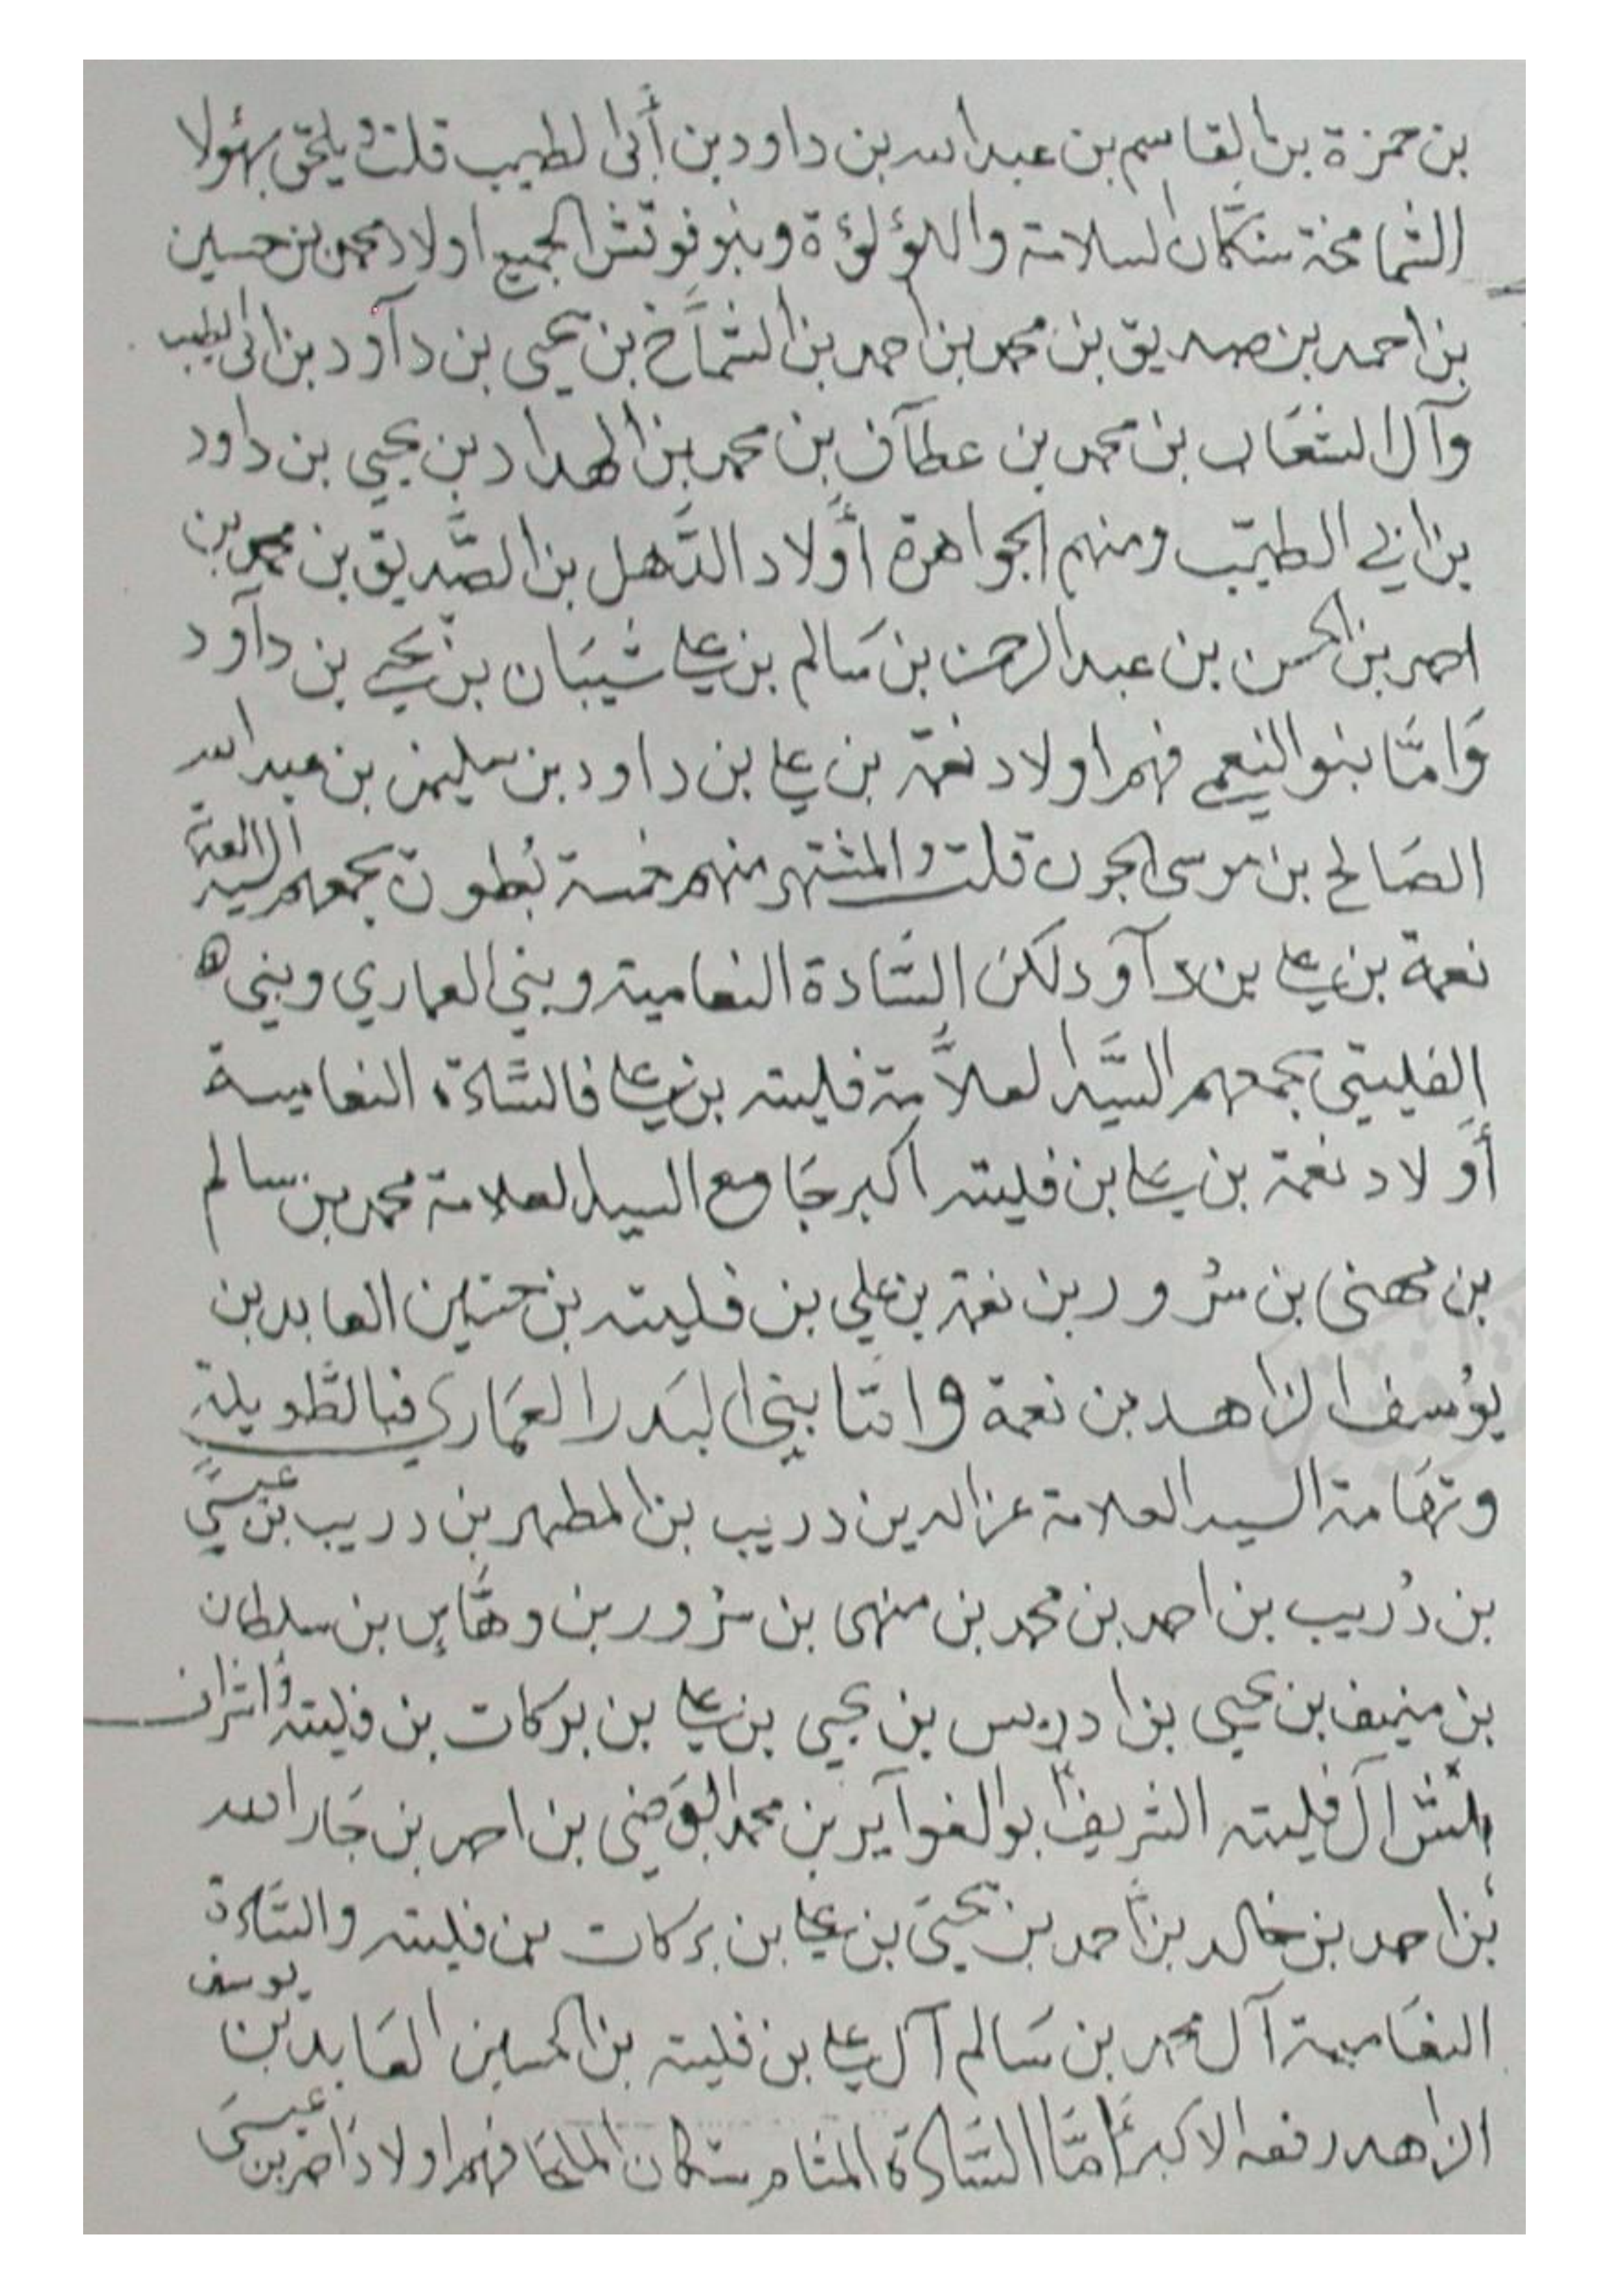 بن حمزة بن القاسم بن عبدالله بن داود بن أبي الطيب قلت ويلحق بهؤلا
الشماخة سكان السلامة واللؤلؤة وبنو فوتش الجميع اولاد محمد بن حسين
بن احمد بن صديق بن محمد بن احمد بن الشماخ بن يحيى بن دآود بن ابي الطيب
وآل الشعاب بن محمد بن عطآف بن محمد بن الهداد بن يحيى بن داود
بن ابي الطيب ومنهم الجواهرة أولاد الدهل بن الصديق بن محمد بن
احمد بن الحسن بن عبدالرحمن بن سالم بن علي شيبان بن يحيى بن دآود
وَامَّا بنو النعمي فهم اولاد نعمة بن علي بن داود بن سليمن بن عبدالله
الصالح بن موسى الجون قلت والمشتهر منهم خمسة بُطون يجمعهم السيد
نعمة بن علي بن دآود لكن السَّادة النعامية وبني العماري وبني
الفليتي يجمعهم السَّيد العلاَّمة فليته بن علي فالسَّادة النعامية
أولاد نعمة بن علي بن فليته اكبر جَامع السيد العلامة محمد بن سالم
بن مهنى بن سُرور بن نعمة بن علي بن فليته بن حسين العابد بن
يوُسف الزاهد بن نعمة وامَّا بني البَدر العمَاري فبالطَّويلة
وتهَامة السيد العلامة عزالدين دريب بن المطهر بن دريب بن عيسى
بن دُريب بن احمد بن محمد بن منهى بن سرُور بن وهَّاس بن سلطان
بن منيف بن يحيى بن ادريس بن يحيى بن علي بن بركات بن فليته واشراف
بلش آل فليته الشريف ابوالغوآير بن محمد بن احمد بن جَارالله
بن احمد بن خالد بن احمد بن يحيَى بن علي بن بركات بن فليته والسَّادة
النعَامية آل محمد بن سَالم آل علي بن فليته بن الحسين العَابد بن يوسف
الزاهد رفعه الاكبر أمَّا السَّادة المنَامر سكان الملحَا فهم اولاد ناصر بن عيسىَ